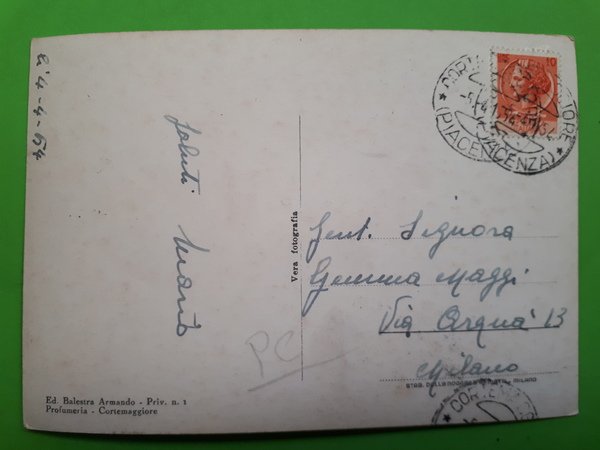 li 4-4-54
Saluti
Mario
Vera fotografia
10
CORTEMAGGIORE
(PIACENZA)
Gent. Signora
Gemma Maggi
Via Arquà 13
Milano
PC
MILANO
CORTEM
Ed. Balestra Armando - Priv. n. 1
Profumeria - Cortemaggiore